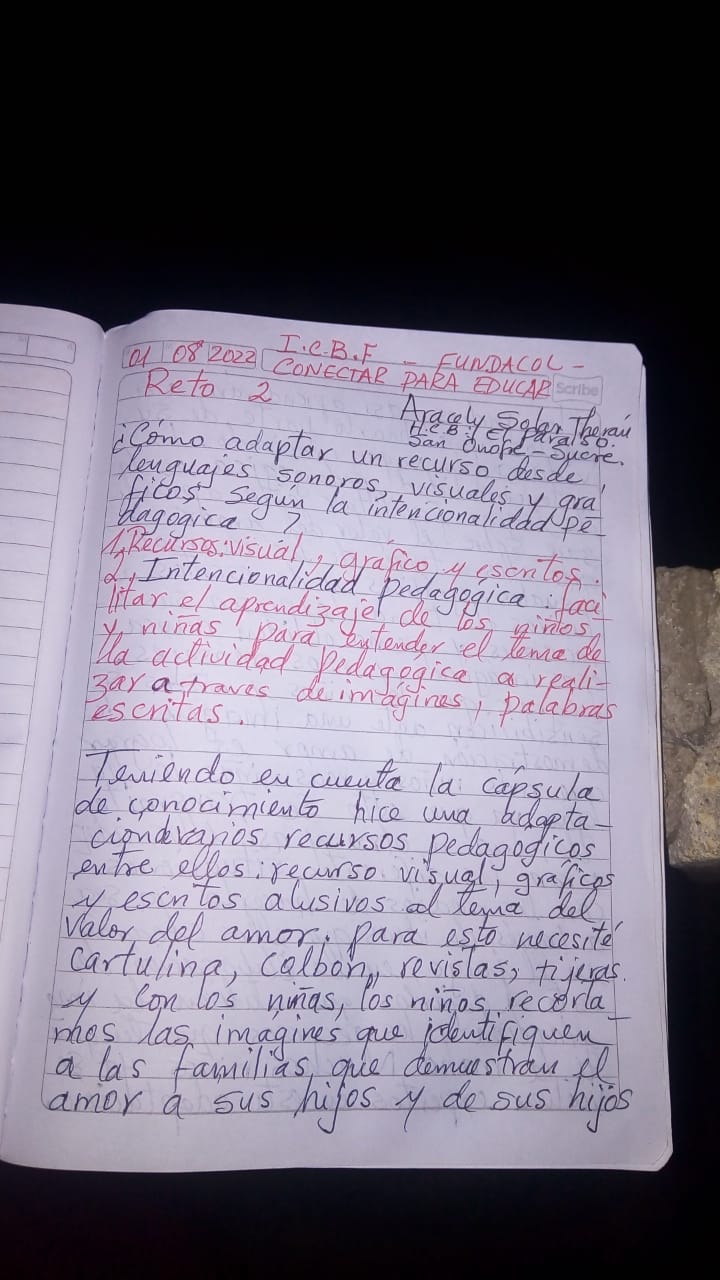 01 08 2022 I.C.B.F - FUNDACOL -
CONECTAR PARA EDUCAR Scribe
Reto 2
Aracely Therán
H.C.B: El Paraíso.
San Onofre - Sucre.
¿Cómo adaptar un recurso desde
lenguajes sonoros, visuales y grá
ficos segun la intencionalidad pe
dagogica?
1, Recursos: visual, gráfico y escritos.
2, Intencionalidad pedagógica: faci
litar el aprendizaje de los niños
y niñas para entender el tema de
la actividad pedagógica a reali-
zar a traves de imágines, palabras
escritas.
Teniendo en cuenta la cápsula
de conocimiento hice una adapta-
cion de varios recursos pedagogicos
entre ellos: recurso visual, graficos
y escritos alusivos al tema del
Valor del amor. para esto necesité
Cartulina, Colbón, revistas, tijeras.
y con los niñas, los niños, recorta
mos las imagines que identifiquen
a las familias que demuestran el
amor a sus hijos y de sus hijos